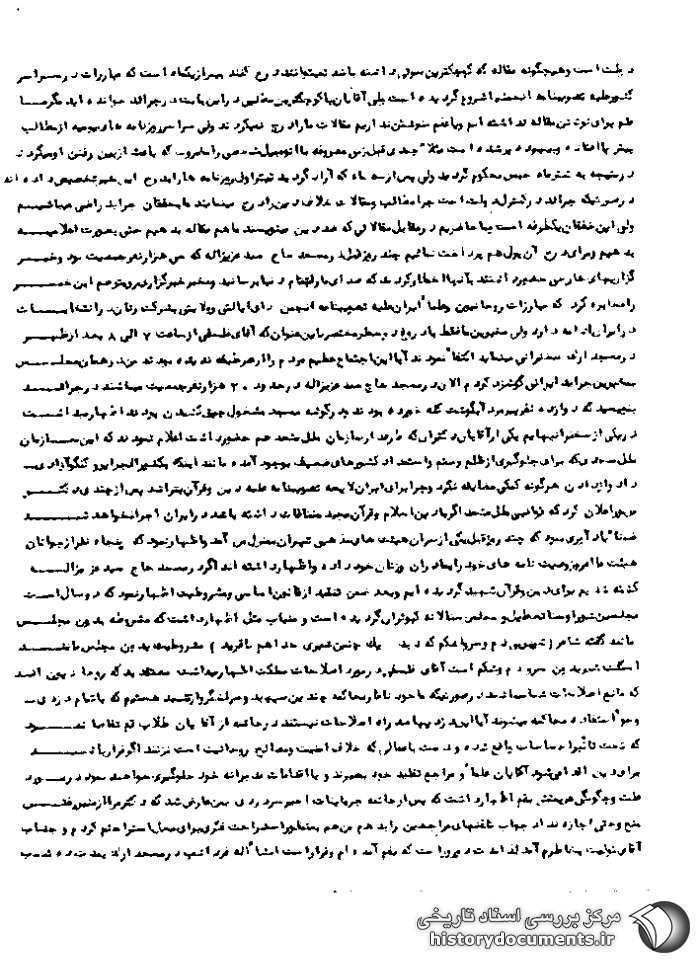 دولت است وهیچگونه مقاله که کوچکترین سوئی داشته باشد نمیتوانند درج کنند بیش از یکماه است که مبارزات در سراسر
کشور علیه تصویبنامه انجمنها شروع گردیده است ولی آقایان با کوچکترین مطلبی در این بابت در جرائد خوانده اید مگر ما
قلم برای نوشتن مقاله نداشته ایم و یا قلم نوشتن نداریم مقالات ما را درج نمیکردند ولی سراسر روزنامه های یومیه از مطالب
پیش پا افتاده و بیهوده پر شده است مثلا چندی قبل زن معروفه با اتومبیلش شخصی را مضروب که باعث از بین رفتن او میگردد
در نتیجه به شش ماه حبس محکوم گردید ولی پس از سه ماه که آزاد گردید تیتر اول روزنامه ها را بدرج این خبر تخصیص داده اند
در صورتیکه جرائد در کنترل دولت است چرا مطالب و مقالات خلاف دین را درج مینمایند ما بخفقان جراید راضی میباشیم
ولی این خفقان یکطرفه است ما حاضریم در مقابل مقالاتی که ضد دین مینویسند ما هم مقاله بدهیم حتی بصورت اعلامیه
بدهیم و برای درج آن پول هم پرداخت نمائیم چند روز قبل در مسجد حاج سید عزیزاله که سی هزار نفر جمعیت بود و خبر
گزاریهای خارجی حضور داشتند بآنها اخطار کردید که صدای ما را بتمام دنیا برسانید و مخبر خبرگزاری رویتر هم این خبر
را مخابره کرد که مبارزات روحانیون و علما ایران علیه تصویبنامه انجمن های ایالتی و ولایتی بشرکت زنان در انتخابات
در ایران ادامه دارد ولی مخبرین ما فقط با درج دو سطر مختصر باین عنوان که آقای فلسفی از ساعت ۷ الی ۸ بعد از ظهر
در مسجد ارک سخنرانی مینماید اکتفا نمودند آیا این اجتماع عظیم مردم را از صرحیکه ندیده بودند من در همان مجلس
بمخبرین جراید ایرانی گوشزد کردم الان در مسجد حاج سید عزیزاله در حدود ۲۰ هزار نفر جمعیت میباشند در جرائد
بنویسید که دوازده نفر پیرمرد آبگوشت کله خورده بودند و در گوشه مسجد مشغول چپق کشیدن بودند اظهار میداشت
در یکی از سخنرانیهایم یکی از آقایان دکترای که طرفدار سازمان ملل متحد هم حضور داشت اعلام نمودند که این سازمان
ملل متحدیکه برای جلوگیری از ظلم و ستم و استبداد کشورهای ضعیف بوجود آمده مانند اینکه بکشور الجزایر و کنگو آزادی
داد و از دادن هرگونه کمکی مضایقه نکرد و چرا برای ایران لایحه تصویبنامه علیه دین و قرآن بتراشد پس از چندی دکتر
مزبور اعلان کرد که قوانین ملل متحد اگر با دین اسلام و قرآن مجید منافات داشته باشد در ایران اجرا نخواهد شد
ضمنا یادآوری نمود که چند روز قبل یکی از سران هیئت های مذهبی تهران بمنزل من آمد و اظهار نمود که پنجاه نفر از جوانان
هیئت ما امروز وصیت نامه های خود را بمادران وزنان خود داده و اظهار داشته اند اگر در مسجد حاج سید عزیزاله
کشته شدیم برای دین و قرآن شهید گردیده ایم و بعد ضمن تنقید از قانون اساسی و مشروطیت اظهار نمود که دو سال است
مجلسین شورا و سنا تعطیل و مجلس سنا لانه کبوتران گردیده است و من باب مثل اظهار داشت که مشروطه بدون مجلس
مانند گفته شاعر ( شیر بی دم و سر و اشکم که دید یک چنین شیری خدا هم نافرید ) مشروطیت بدون مجلس مانند
است شیر بدون سر و دم و شکم است آقای فلسفی در مورد اصلاحات مملکت اظهار میداشت معتقدید که روحانیون اند
که مانع اصلاحات شما میباشند در صورتیکه ما خود ناظر محاکمه چندین سپهبد و سرلشگر و ارتشبد هستیم که باتهام دزدی
و سوء استفاده محاکمه میشوند آیا این دزدیها سد راه اصلاحات نیستند در خاتمه از آقایان طلاب قم تقاضا نمود
که تحت تاثیر احساسات واقع نشده و دست باعمالی که خلاف امنیت و مصالح روحانیت است نزنند اگر فریادی
برای دین اقدامی شود آقایان علما و مراجع تقلید خود بصیرند و با اقدامات مدبرانه خود جلوگیری خواهند نمود در مورد
علت و چگونگی عزیمتش بقم اظهار داشت که پس از خاتمه جریانات اخیر سردردی بمن عارض شد که دکتر مرا از منبر رفتن
منع و حتی اجازه نداد جواب تلفنهای مراجعین را بدهم من هم بمنظور استراحت فکری برای محل استراحتم کردم و جناب
آقای تولیت بخاطرم آمد لذا مدت دو روز است که بقم آمده ام و قرار است انشا اله فردا شب در مسجد ارک بمدت ده شب
مرکز بررسی اسناد تاریخی
historydocuments.ir